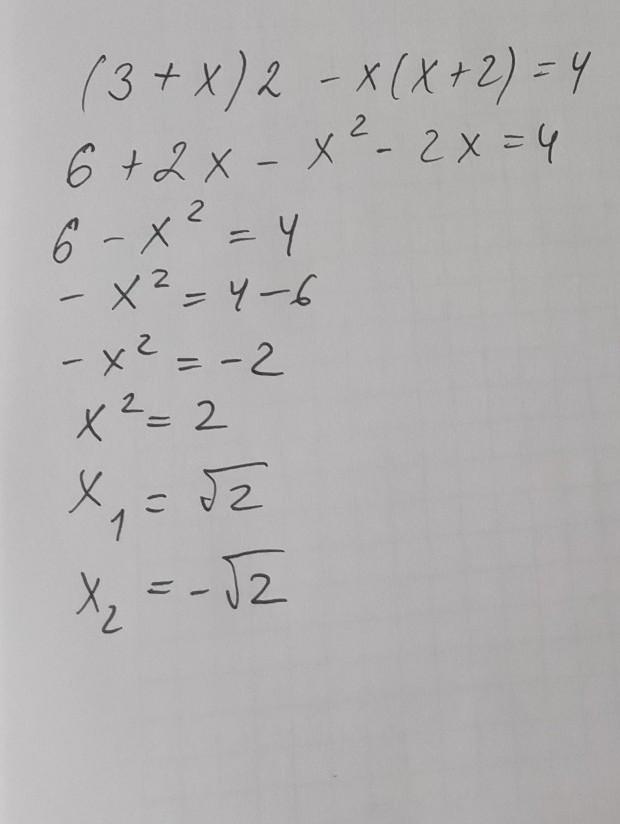 (3 + x)2 - x(x+2) = 4
6 + 2x - x² - 2x = 4
6 - x² = 4
- x² = 4 - 6
- x² = -2
x² = 2
x₁ = √2
x₂ = -√2